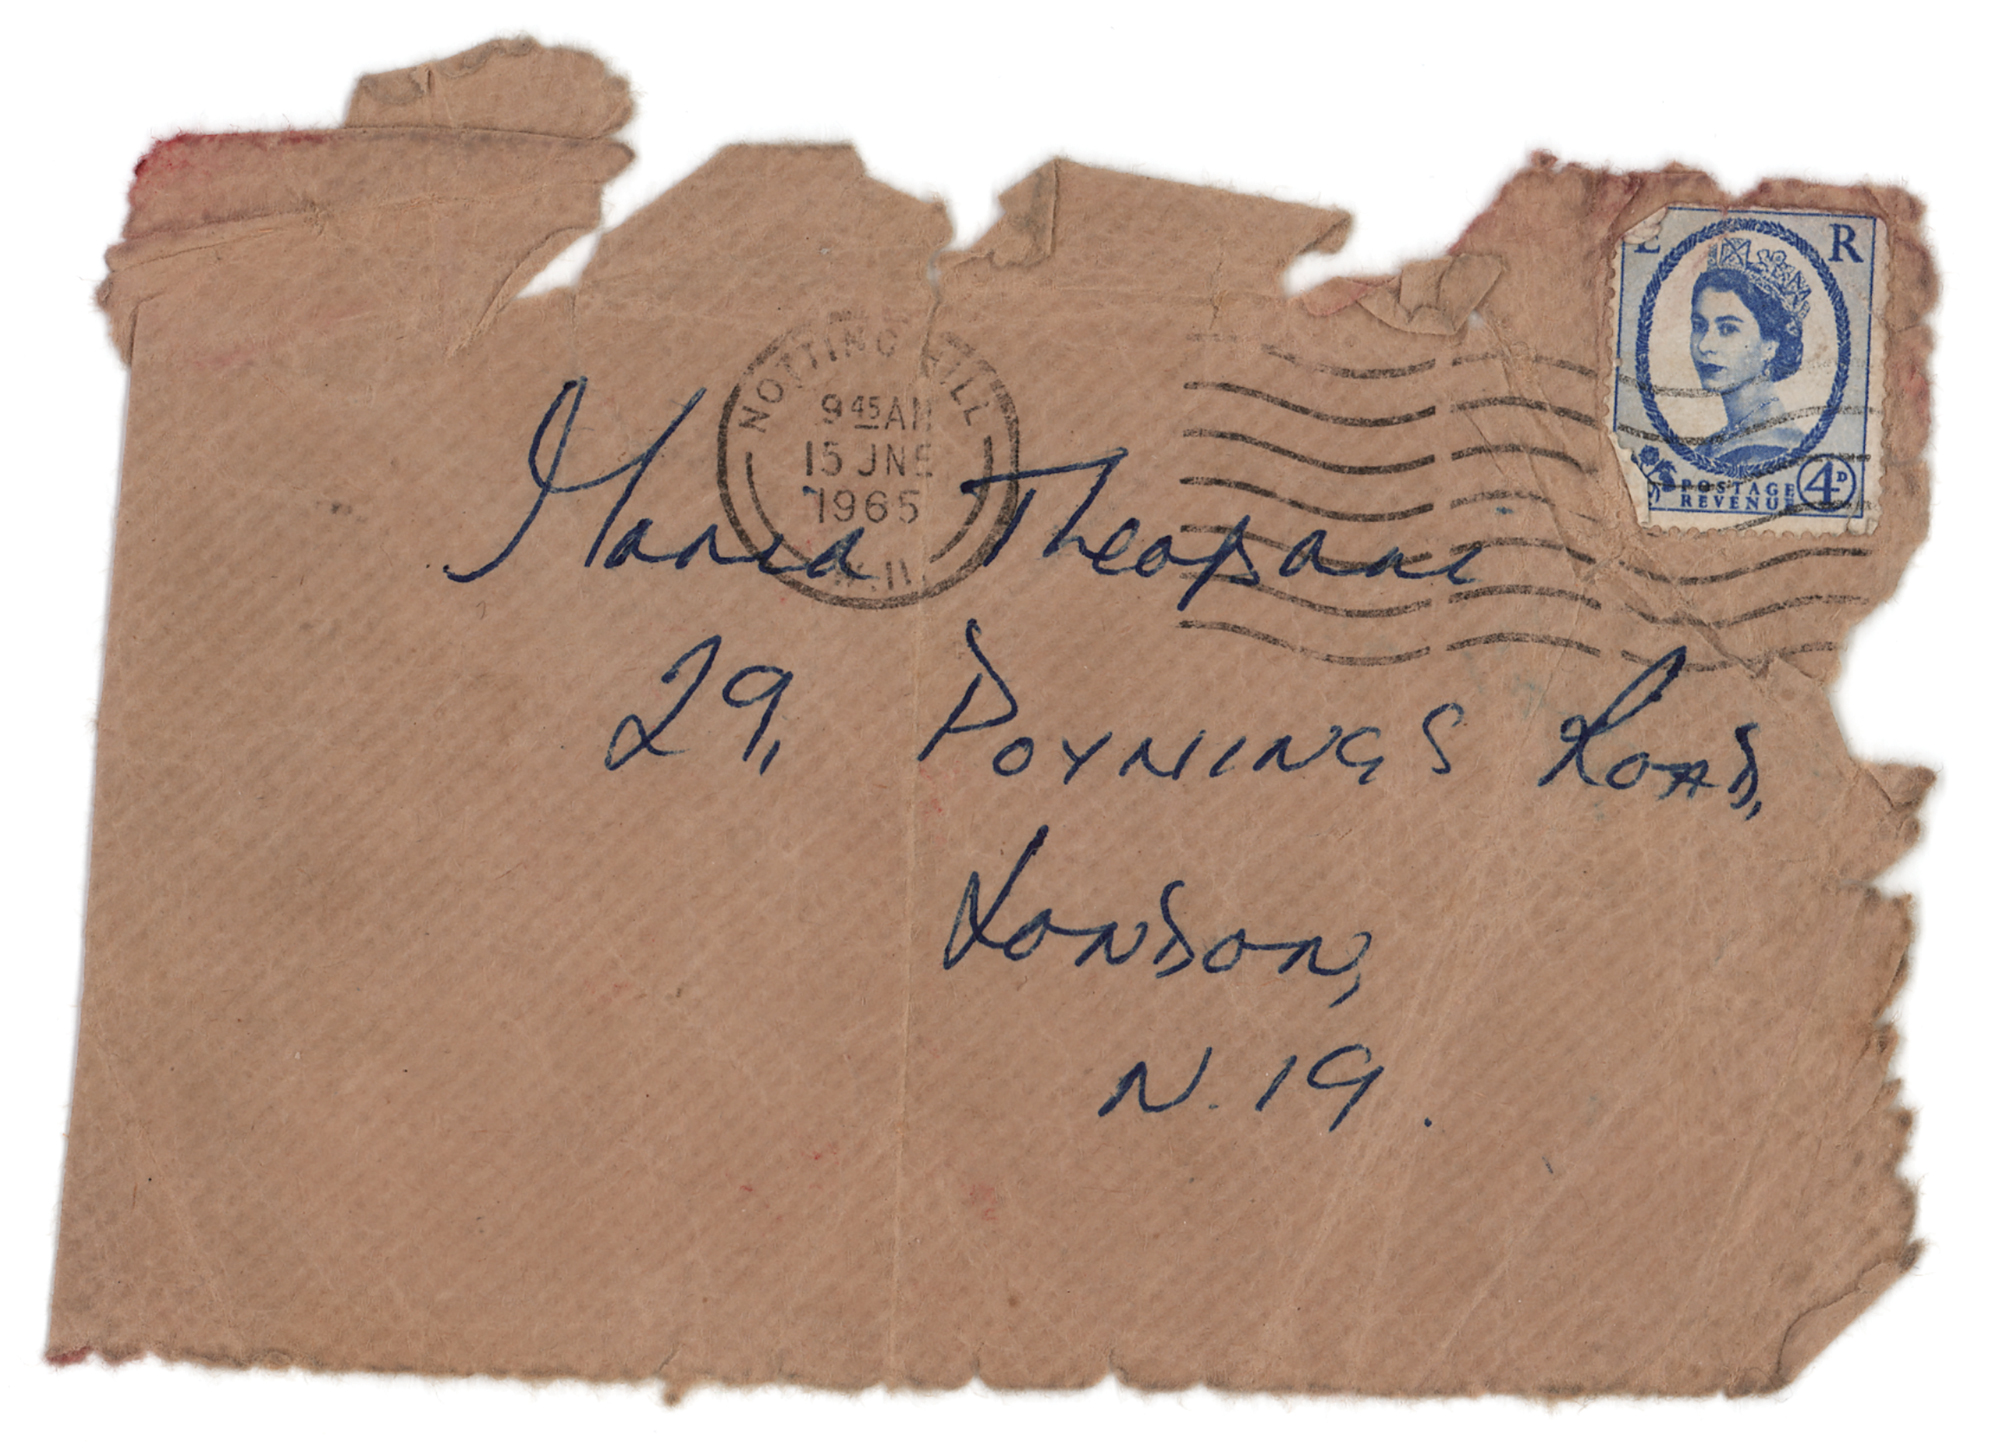 E R
POSTAGE
REVENUE
4D
NOTTING HILL
9 45 AM
15 JNE
1965
W.11
Maria
29, POYNINGS ROAD,
LONDON,
N. 19.